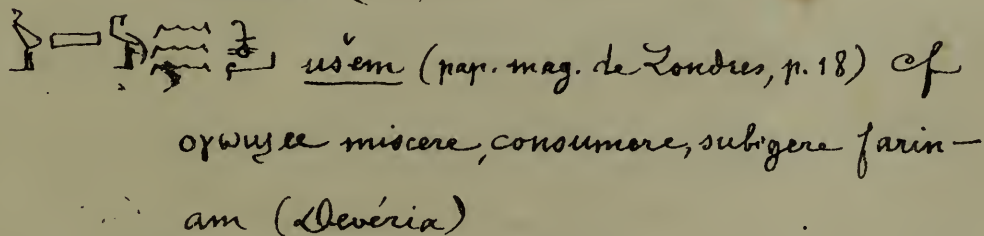 ušem (pap. mag. de Londres, p. 18) Cf
ⲟⲩⲱϣⲙ miscere, consumere, subigere farin-
am (Devéria)